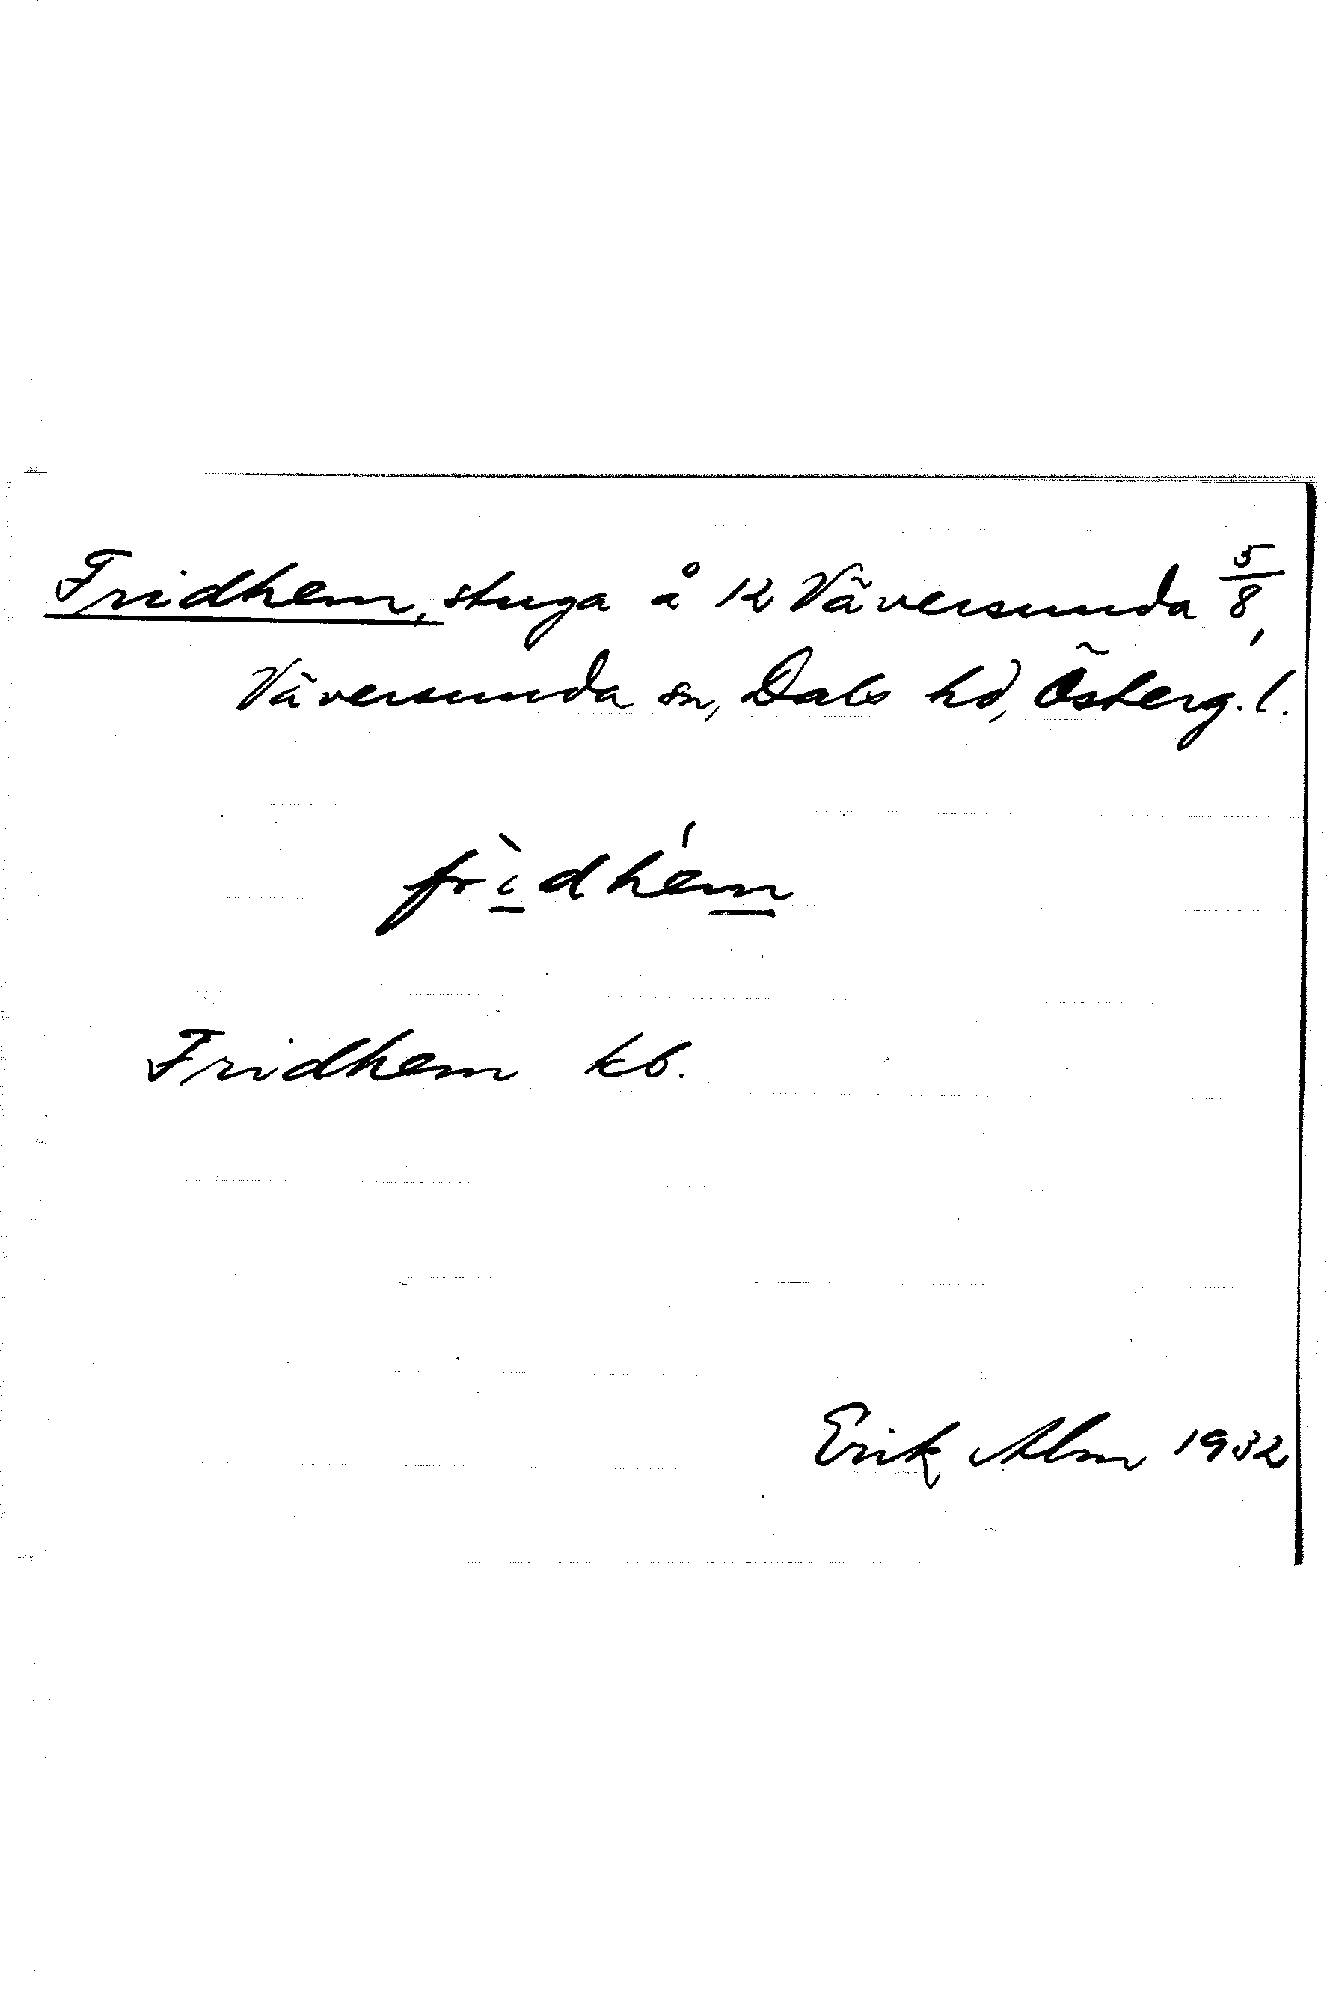 Fridhem, stuga å 12 Väversunda 5/8,
Väversunda sn, Dals hd, Österg. l.
frìdhém
Fridhem kb.
Erik Alm 1932